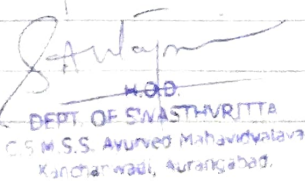 H.O.D.
DEPT. OF SWASTHVRITTA
C.S.M.S.S. Ayurved Mahavidyalaya
Kanchanwadi, Aurangabad.